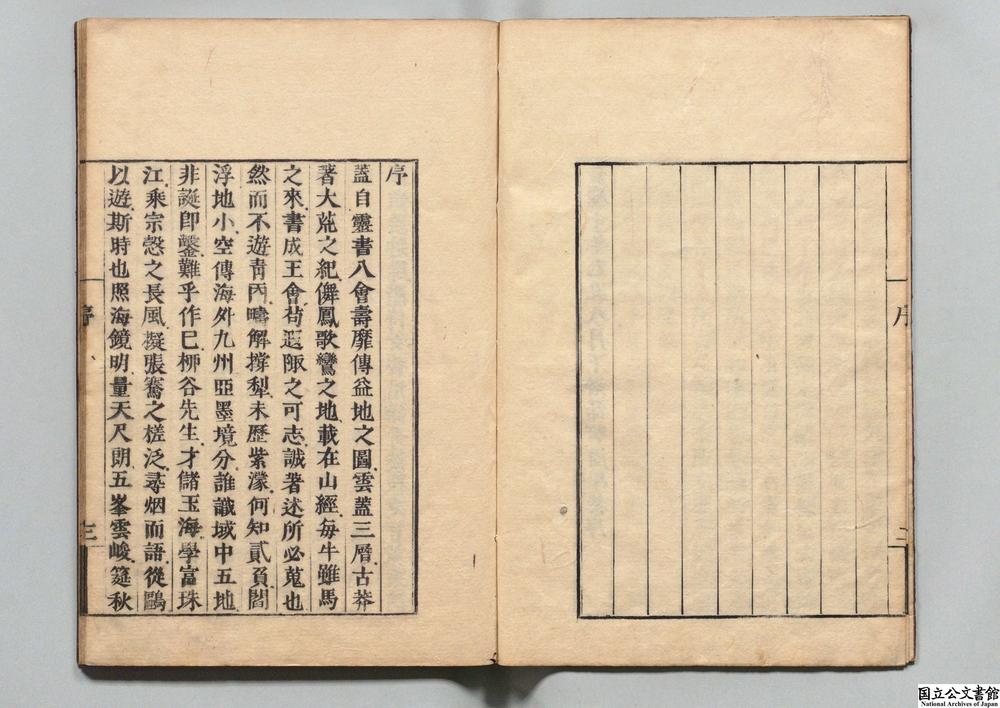 序
蓋自靈書八會壽靡傳益地之圖雲蓋三層古莽
著大荒之紀儛鳳歌鸞之地載在山經每牛雖馬
之來書成王會苟遐陬之可志誠著述所必蒐也
然而不遊青丙疇解撐犁未歷紫濛何知貳負闇
浮地小空傳海外九州亞墨境分誰識域中五地
非誕即鑿難乎作已栁谷先生才儲玉海學富珠
江乘宗慤之長風擬張騫之槎泛尋烟而語從鷗
以遊斯時也照海鏡明量天尺朗五峯雲峻筵秋
序
三
国立公文書館
National Archives of Japan